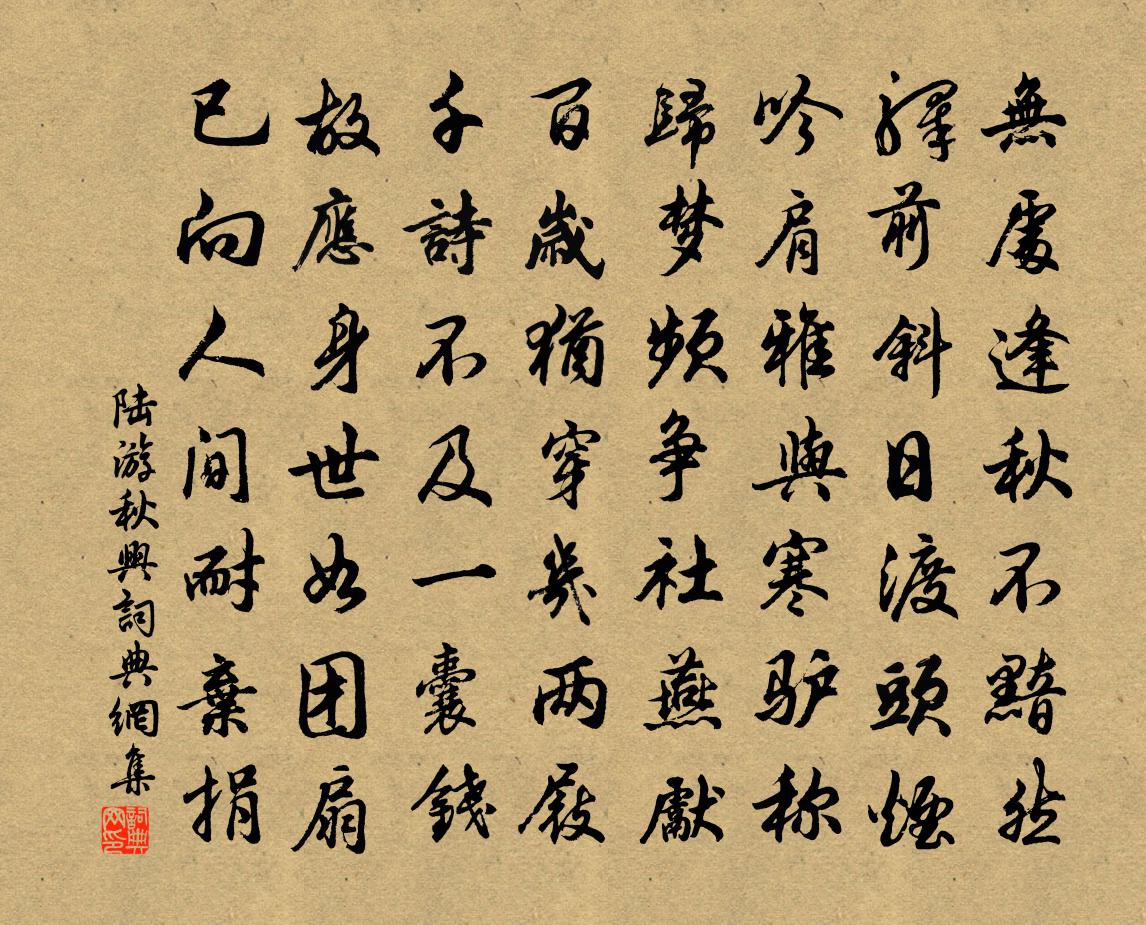 無處逢秋不黯然
驛前斜日渡頭煙
吟肩雅與寒驴称
歸梦頻争社燕獻
百歲猶穿幾两屐
千詩不及一囊錢
故應身世如团扇
已向人間耐棄捐
陆游秋興詞典網集
詞典网印